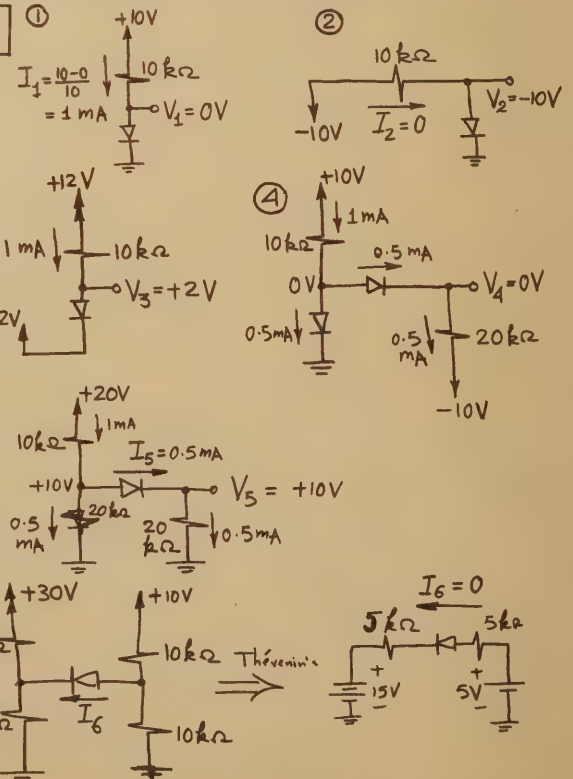 ①
+10V
I₁ = (10-0)/10
= 1 mA
10kΩ
V₁ = 0V
②
10kΩ
-10V
I₂ = 0
V₂ = -10V
+12V
1 mA
10kΩ
V₃ = +2V
2V
④
+10V
1mA
10kΩ
0.5 mA
0V
V₄ = 0V
0.5mA
0.5
mA
20kΩ
-10V
+20V
1mA
10kΩ
I₅ = 0.5mA
+10V
V₅ = +10V
20kΩ
0.5
mA
20
kΩ
0.5mA
+30V
+10V
Ω
10kΩ
I₆
Ω
10kΩ
Thévenin's
I₆ = 0
5kΩ
5kΩ
+
15V
-
+
5V
-